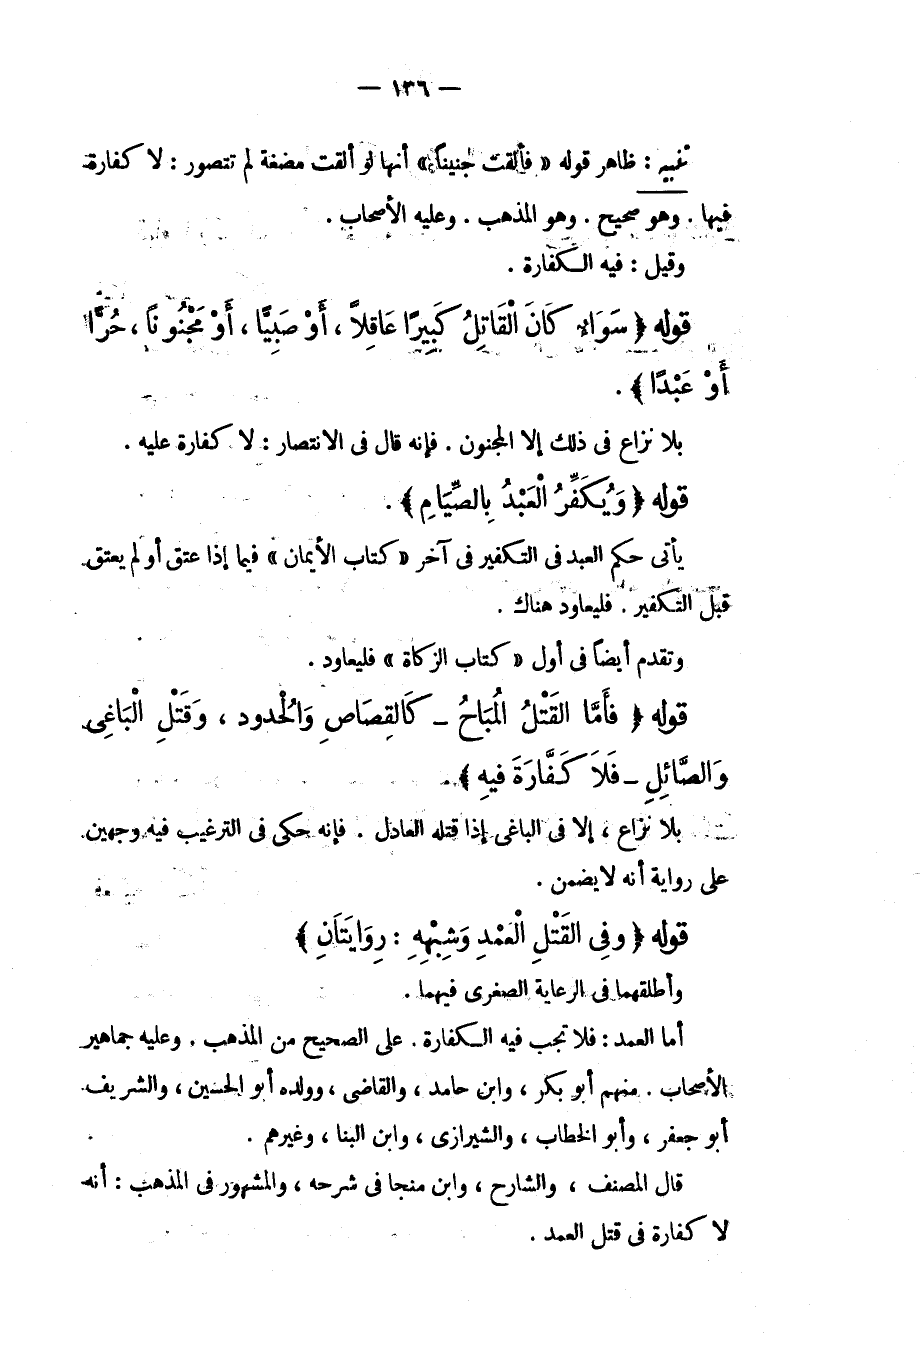 — ١٣٦ —
تنبيه : ظاهر قوله « فألقت جنيناً » أنها لو ألقت مضغة لم تتصور : لا كفارة
فيها . وهو صحيح . وهو المذهب . وعليه الأصحاب .
وقيل : فيه الكفارة .
قوله ﴿ سَوَاء كَانَ الْقَاتِلُ كَبِيرًا عَاقِلاً ، أَوْ صَبِيًّا ، أَوْ مَجْنُونًا ، حُرًّا
أَوْ عَبْدًا ﴾ .
بلا نزاع فى ذلك إلا المجنون . فإنه قال فى الانتصار : لا كفارة عليه .
قوله ﴿ وَيُكَفِّرُ الْعَبْدُ بِالصِّيَامِ ﴾ .
يأتى حكم العبد فى التكفير فى آخر « كتاب الأيمان » فيما إذا عتق أو لم يعتق
قبل التكفير . فليعاود هناك .
وتقدم أيضاً فى أول « كتاب الزكاة » فليعاود .
قوله ﴿ فأَمَّا القَتْلُ الْمُبَاحُ – كَالقِصَاصِ وَالْحُدود ، وَقَتْلِ الْبَاغِى
وَالصَّائِلِ – فَلاَ كَفَّارَةَ فيهِ ﴾ .
بلا نزاع ، إلا فى الباغى إذا قتله العادل . فإنه حكى فى الترغيب فيه وجهين
على رواية أنه لا يضمن .
قوله ﴿ وفِى القَتْلِ الْعَمْدِ وَشِبْهِهِ : رِوَايَتَانِ ﴾
وأطلقهما فى الرعاية الصغرى فيهما .
أما العمد : فلا تجب فيه الكفارة . على الصحيح من المذهب . وعليه جماهير
الأصحاب . منهم أبو بكر ، وابن حامد ، والقاضى ، وولده أبو الحسين ، والشريف
أبو جعفر ، وأبو الخطاب ، والشيرازى ، وابن البنا ، وغيرهم .
قال المصنف ، والشارح ، وابن منجا فى شرحه ، والمشهور فى المذهب : أنه
لا كفارة فى قتل العمد .